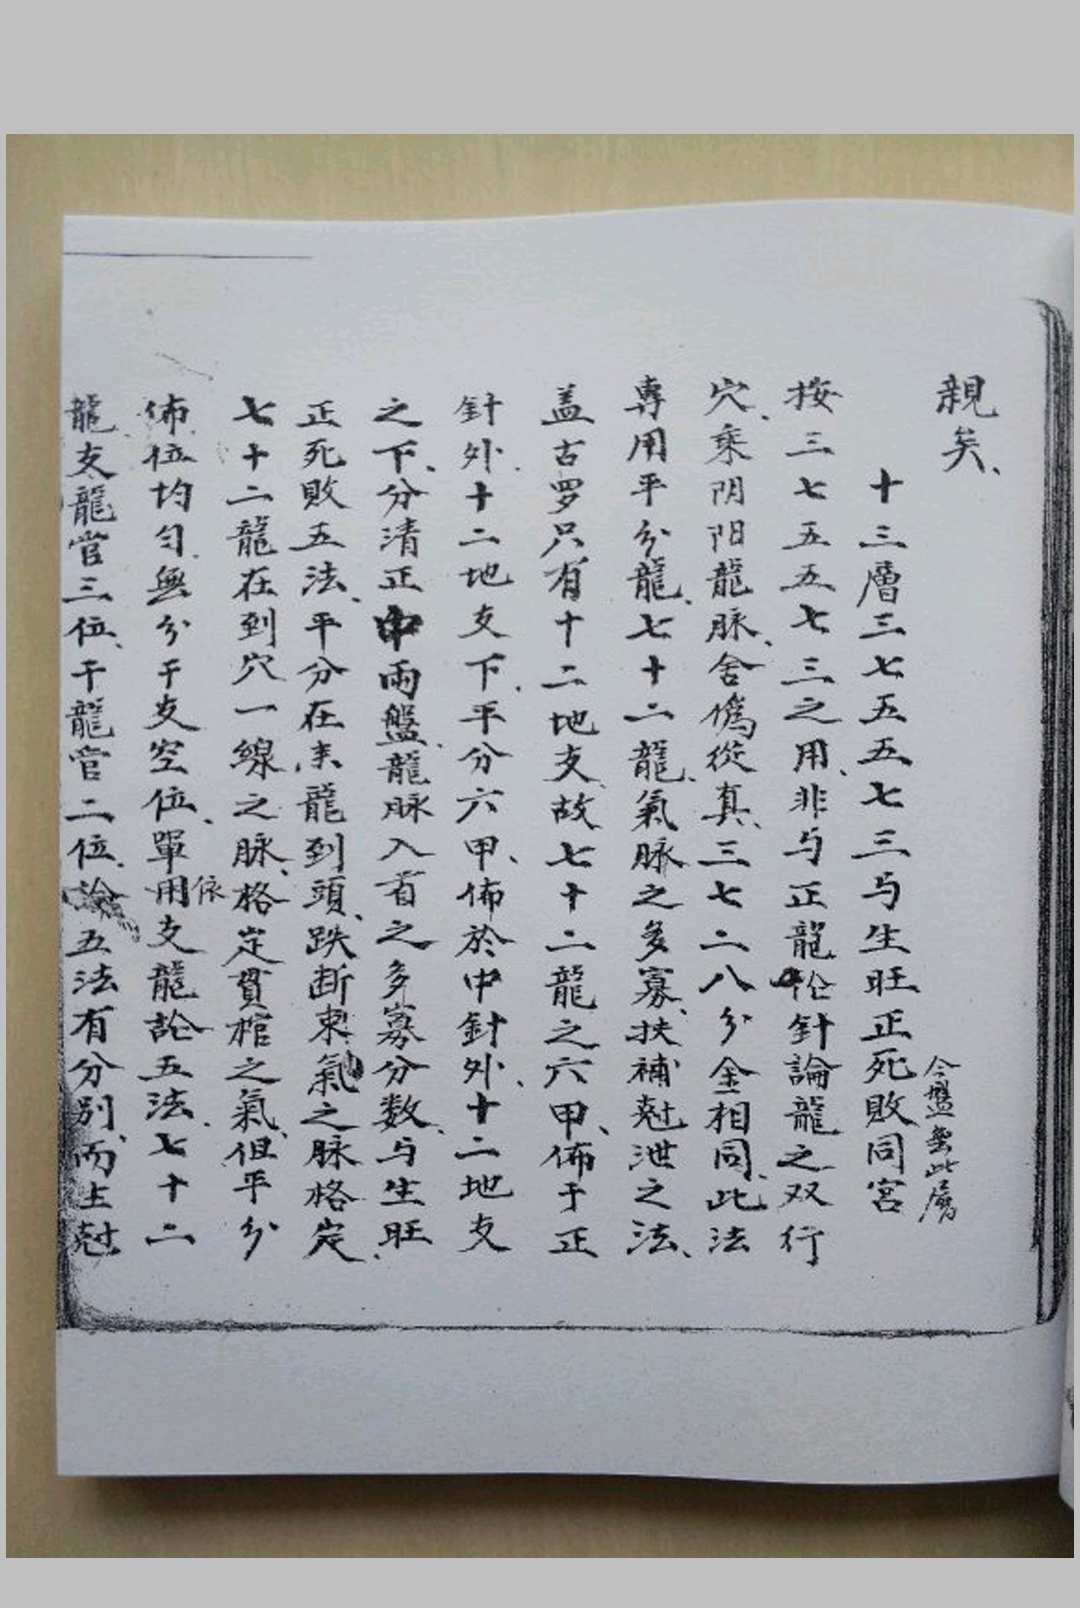 親矣、
十三層三七五五七三与生旺正死敗同宮
今盤無此層
按三七五五七三之用、非与正龍論針論龍之双行
穴、乘阴阳龍脉、舍僞從真、三七二八分金相同、此法
專用平分龍、七十二龍、氣脉之多寡、扶補尅泄之法、
盖古罗只有十二地支、故七十二龍之六甲、佈于正
針外、十二地支下、平分六甲、佈於中針外、十二地支
之下、分清正中兩盤、龍脉入首之多寡分数、与生旺
正死敗五法、平分在来龍到頭、跌断束氣之脉格定、
七十二龍在到穴一線之脉、格定貫棺之氣、但平分
佈位均匀、無分干支空位、單用依支龍論五法、七十二
龍支龍管三位、干龍管二位、論五法有分别、而生尅